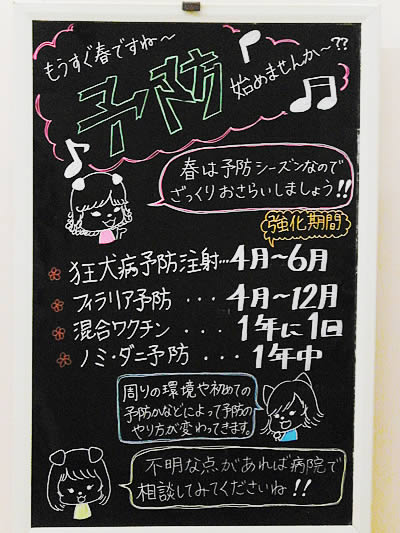 もうすぐ春ですね〜
予防
始めませんか〜??
春は予防シーズンなので
ざっくりおさらいしましょう!!
強化期間
狂犬病予防注射…4月〜6月
フィラリア予防・・・4月〜12月
混合ワクチン・・・1年に1回
ノミ・ダニ予防・・1年中
周りの環境や初めての
予防かなどによって予防の
やり方が変わってきます。
不明な点があれば病院で
相談してみてくださいね!!